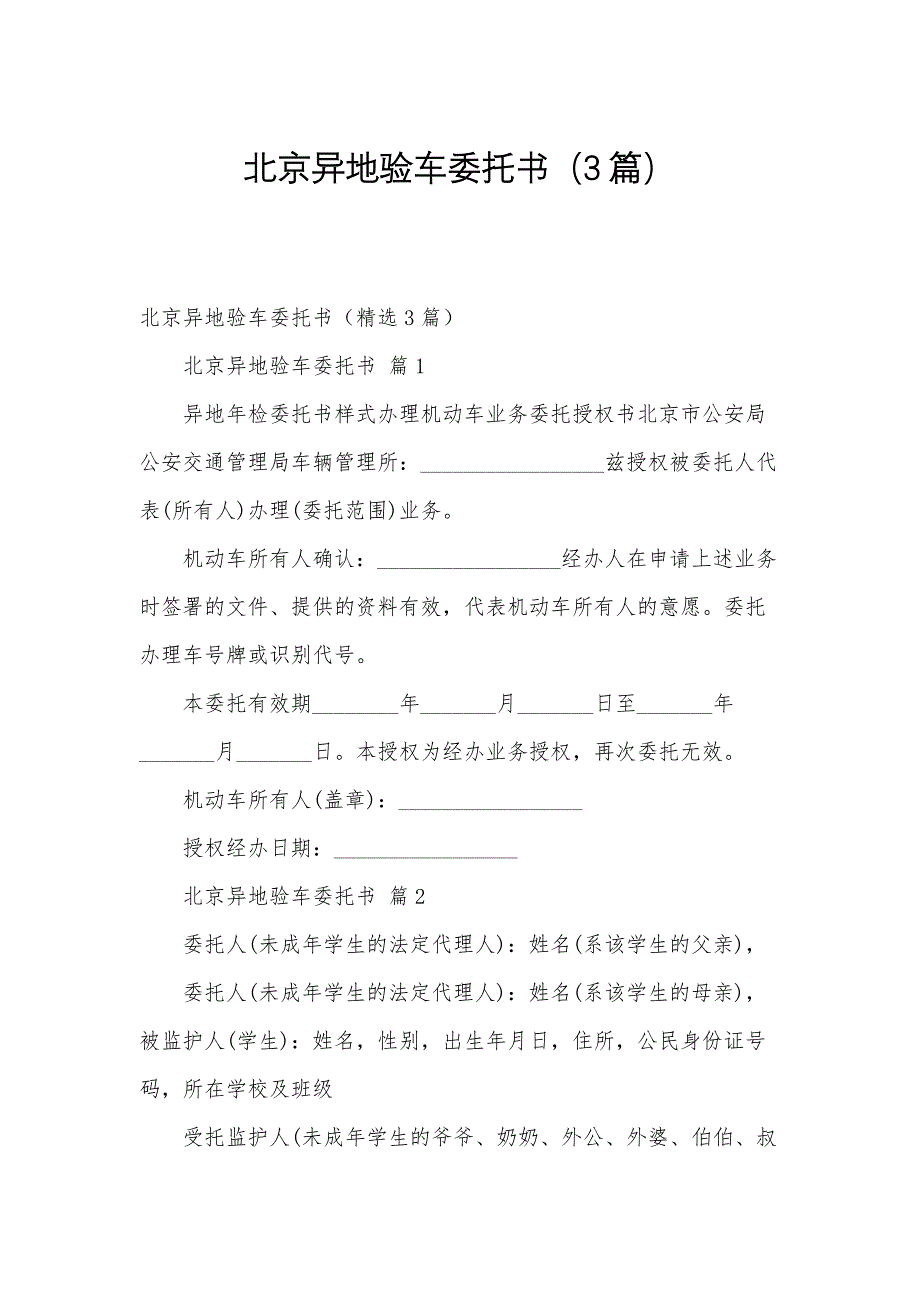 北京异地验车委托书（3篇）
北京异地验车委托书（精选3篇）
北京异地验车委托书 篇1
异地年检委托书样式办理机动车业务委托授权书北京市公安局
公安交通管理局车辆管理所：_________________兹授权被委托人代
表(所有人)办理(委托范围)业务。
机动车所有人确认：_________________经办人在申请上述业务
时签署的文件、提供的资料有效，代表机动车所有人的意愿。委托
办理车号牌或识别代号。
本委托有效期________年_______月_______日至_______年
_______月_______日。本授权为经办业务授权，再次委托无效。
机动车所有人(盖章)：_________________
授权经办日期：_________________
北京异地验车委托书 篇2
委托人(未成年学生的法定代理人)：姓名(系该学生的父亲)，
委托人(未成年学生的法定代理人)：姓名(系该学生的母亲)，
被监护人(学生)：姓名，性别，出生年月日，住所，公民身份证号
码，所在学校及班级
受托监护人(未成年学生的爷爷、奶奶、外公、外婆、伯伯、叔